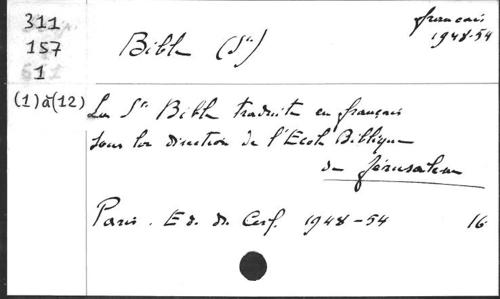 311
157
1
(1) à (12)
français
1948-54
Bible (Ste)
La Ste Bible traduite en français
sous la direction de l'Ecole Biblique
de Jérusalem
Paris. Ed. du Cerf. 1948-54 16